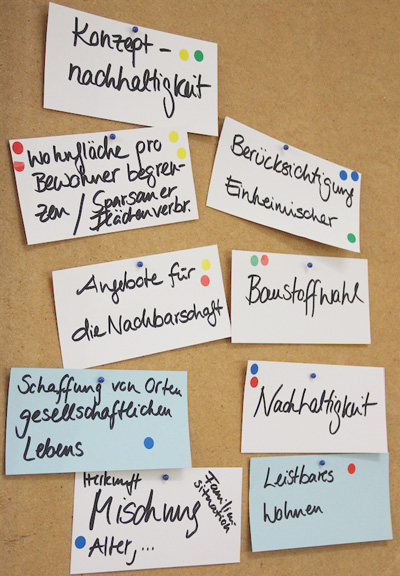 Konzept-
nachhaltigkeit
Wohnfläche pro
Bewohner begren-
zen / Sparsamer
Flächenverbr.
Berücksichtigung
Einheimischer
Angebote für
die Nachbarschaft
Baustoffwahl
Schaffung von Orten
gesellschaftlichen
Lebens
Nachhaltigkeit
Herkunft
Mischung
Alter, ...
Familien
situation
Leistbares
Wohnen